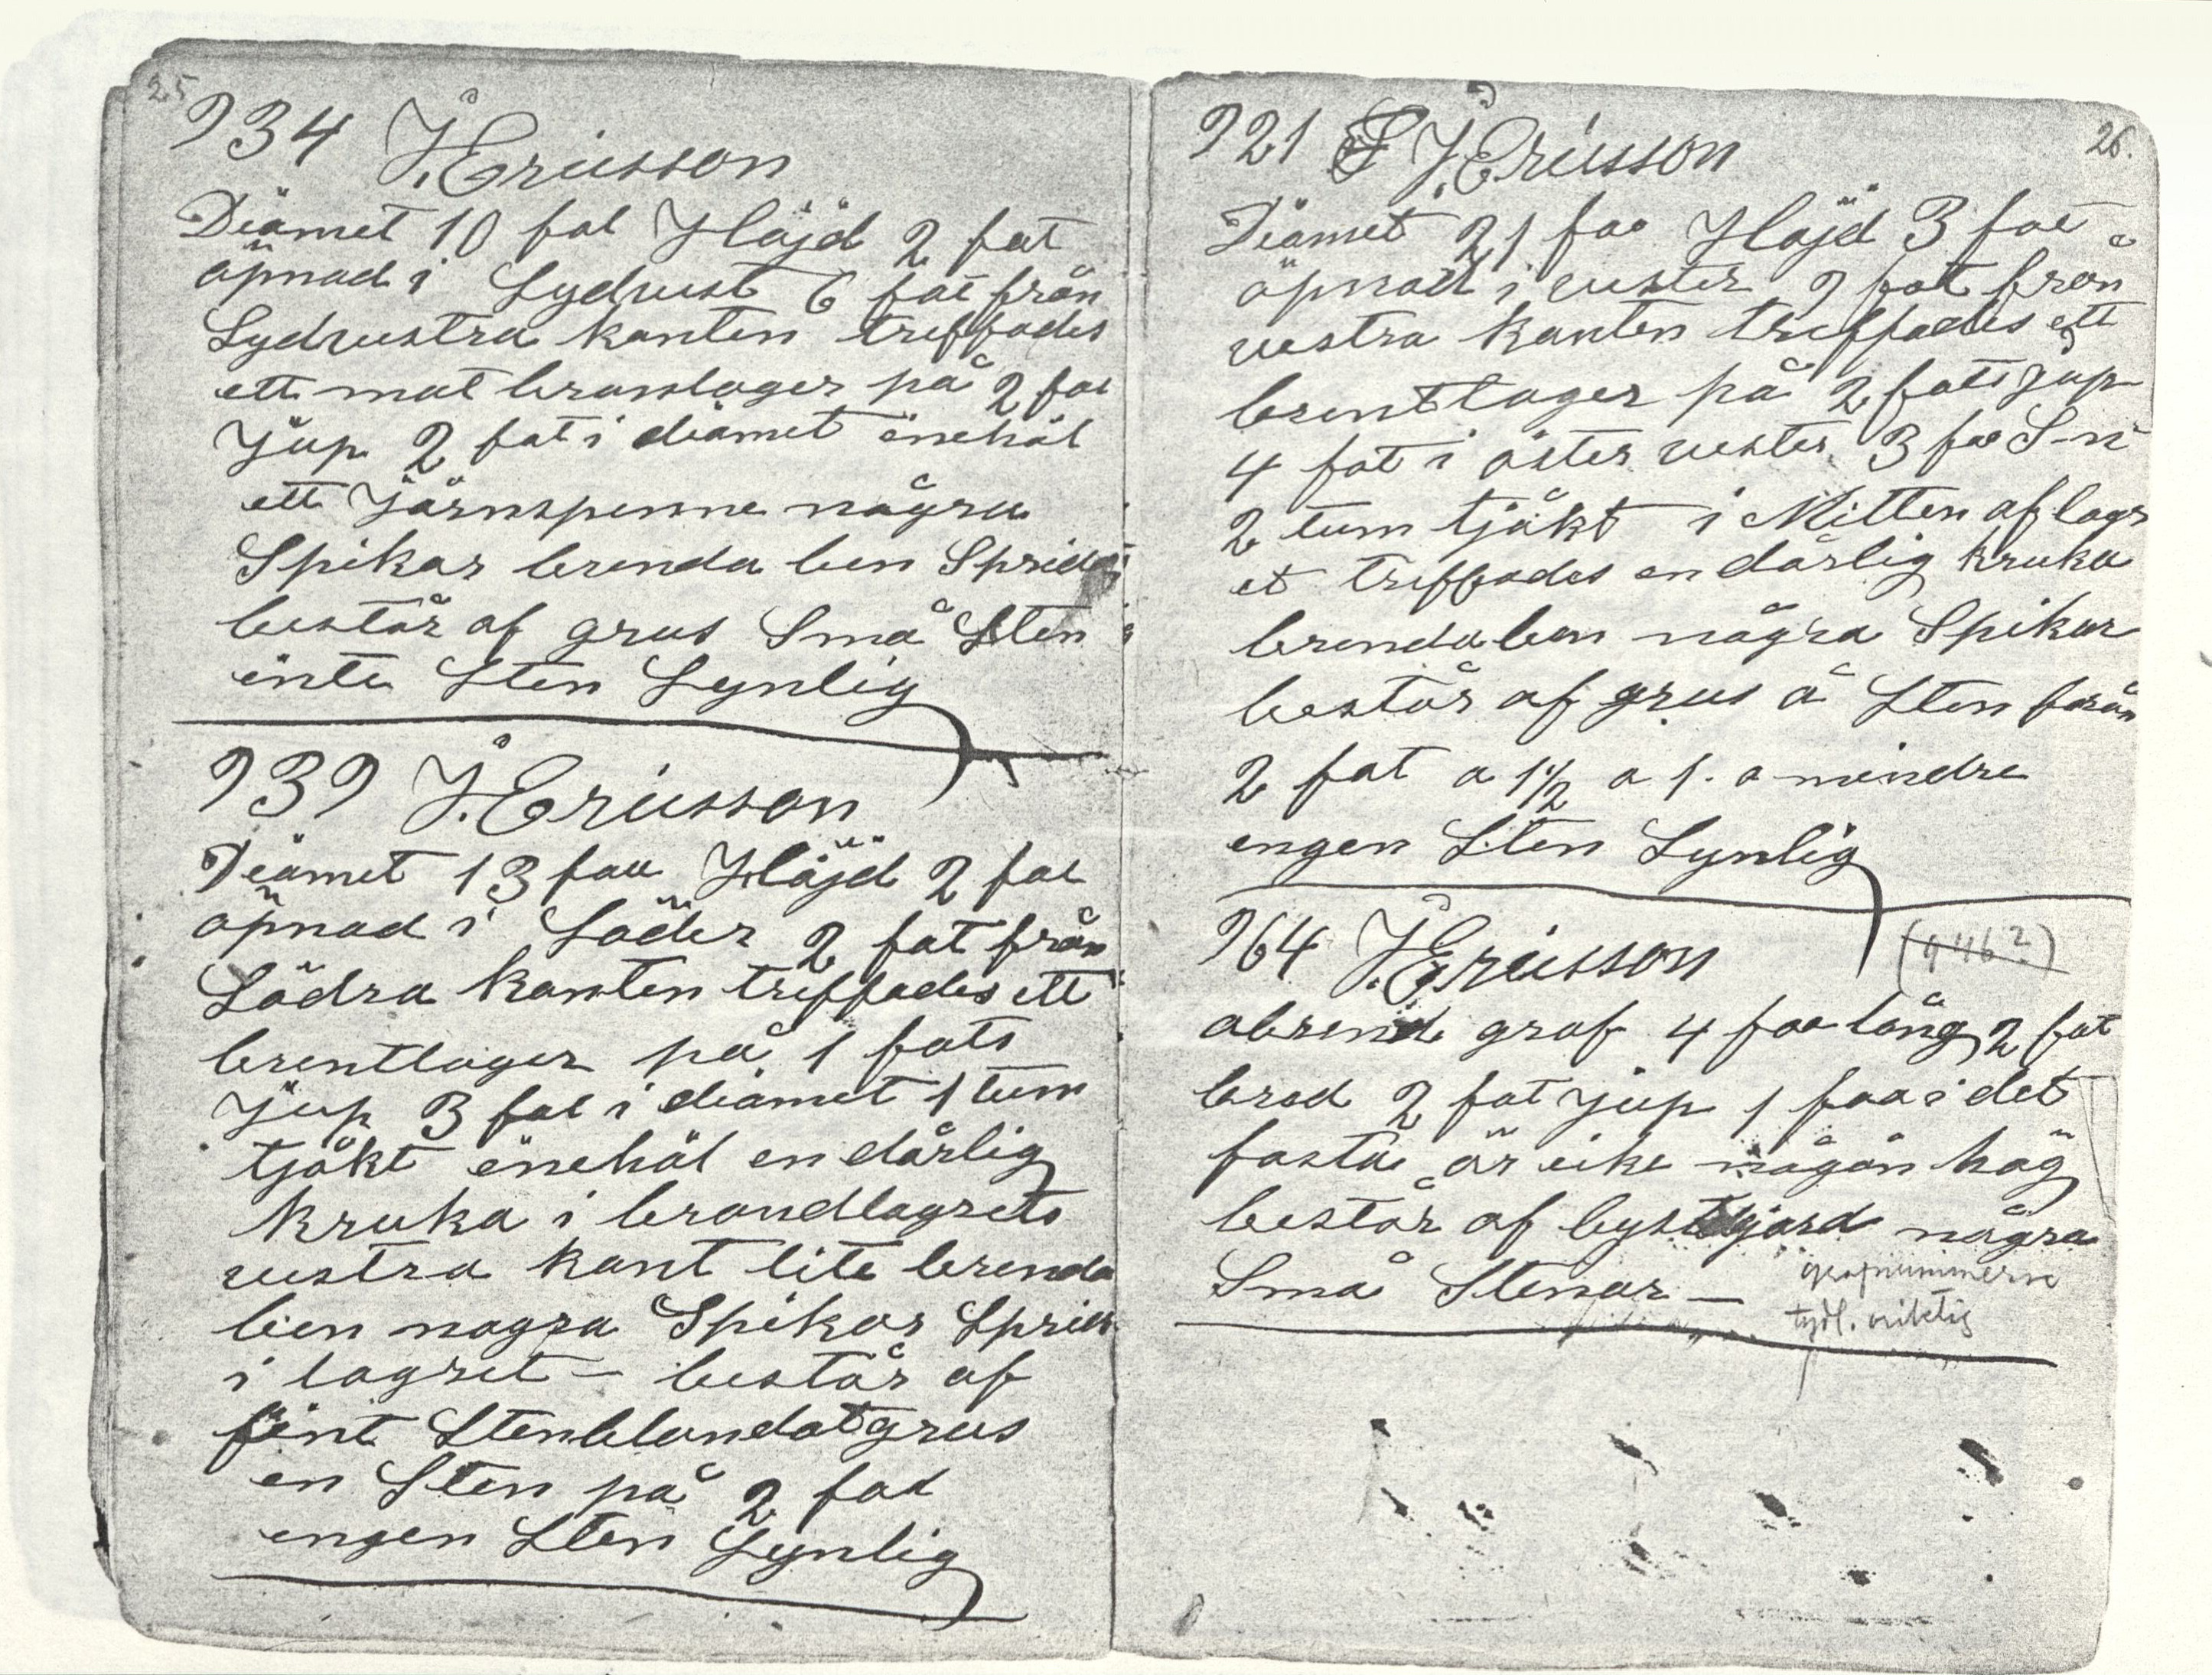 25
934 J. Ericsson
Diamet 10 fot Höjd 2 fot
öpnad i Sydvest 6 fot från
Sydvestra kanten treffades
ett mat brandlager på 2 fot
jup 2 fot i diamet inehöl
ett järnspenne några
Spikar brenda ben Sprid
består af grus Små Sten
inte Sten Synlig
939 J. Ericsson
Diamet 13 fot Höjd 2 fot
öpnad i Söder 2 fot från
Södra kanten treffades ett
brentlager på 1 fots
jup 3 fot i diamet 1 tum
tjökt inehöl en dårlig
kruka i brandlagrets
vestra kant lite brenda
ben nogra Spikar Sprid
i lagret – består af
fint Stenblandat grus
en Sten på 2 fot
ingen Sten Synlig
26.
921 J. Ericsson
Diamet 21 fot Höjd 3 fot
öpnad i vester 9 fot från
vestra kanten treffades ett
brentlager på 2 fots jup
4 fot i öster vester 3 fot S-n
2 tum tjökt i Mitten af lagr
et treffades en dårlig kruka
brenda ben några Spikar
består af grus å Sten från
2 fot a 1 1/2 a 1. a mindre
engen Sten Synlig
964 J. Ericsson (946?)
abrend graf 4 fot lång 2 fot
bred 2 fot jup 1 fot i det
fasta är eike någon hög
består af jord några
Små Stenar —
gravnummerne
tydl. riktig